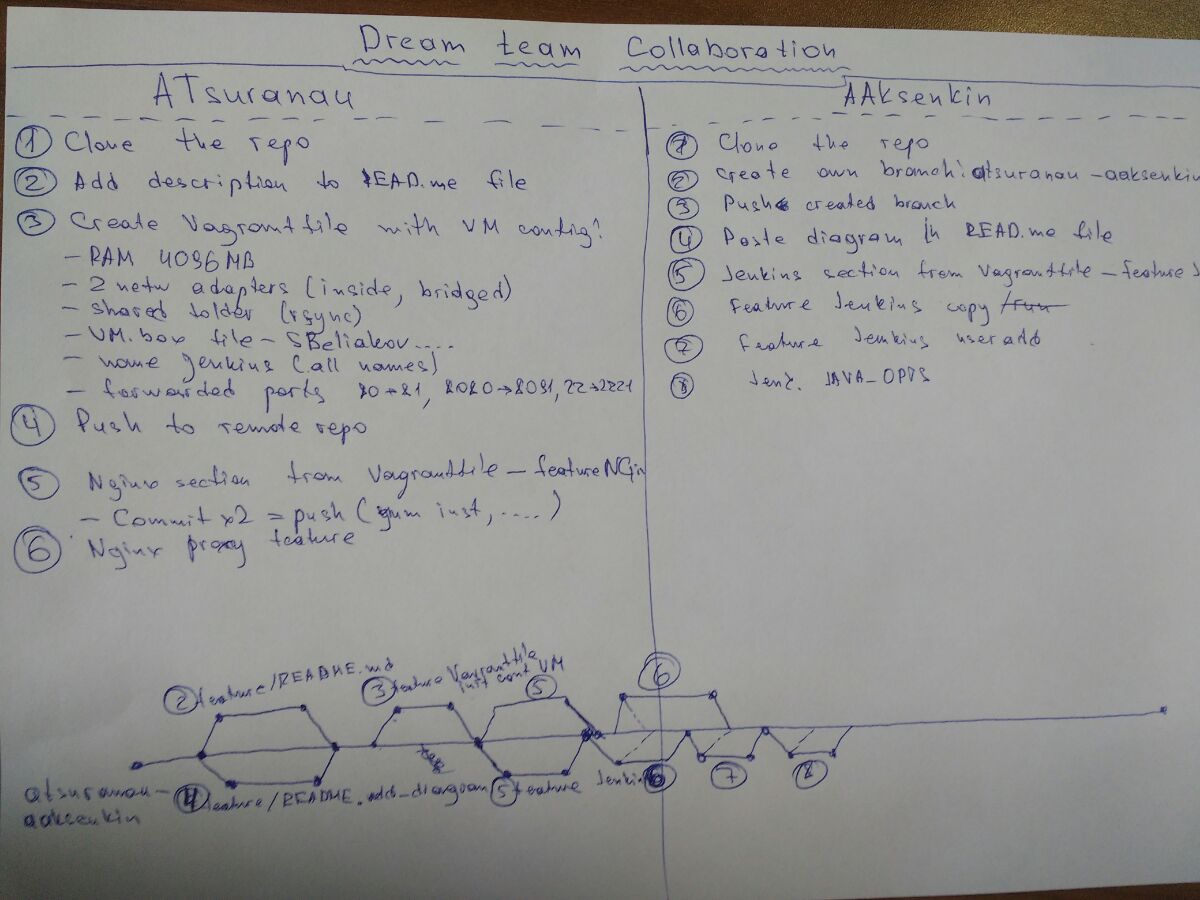 Dream team Collaboration
ATsuranau
① Clone the repo
② Add description to READ.me file
③ Create Vagrantfile with VM config:
- RAM 4096MB
- 2 netw adapters (inside, bridged)
- shared folder (rsync)
- VM.box file - SBeliakov....
- name Jenkins (all names)
- forwarded ports 80→81, 8080→8081, 22→2221
④ Push to remote repo
⑤ Nginx section from Vagrantfile - featureNGin
- Commit x2 = push (yum inst, ....)
⑥ Nginx proxy feature
AAksenkin
① Clone the repo
② Create own branch: atsuranau-aaksenkin
③ Push created branch
④ Paste diagram in READ.me file
⑤ Jenkins section from Vagrantfile - feature J
⑥ Feature Jenkins copy
⑦ Feature Jenkins useradd
⑧ Jenk. JAVA_OPTS
② feature/README.md
③ feature Vagrantfile
init conf VM
⑤
⑥
atsuranau-
aaksenkin
④ feature/README.add_diagram
⑤ feature Jenkins
⑥
⑦
⑧